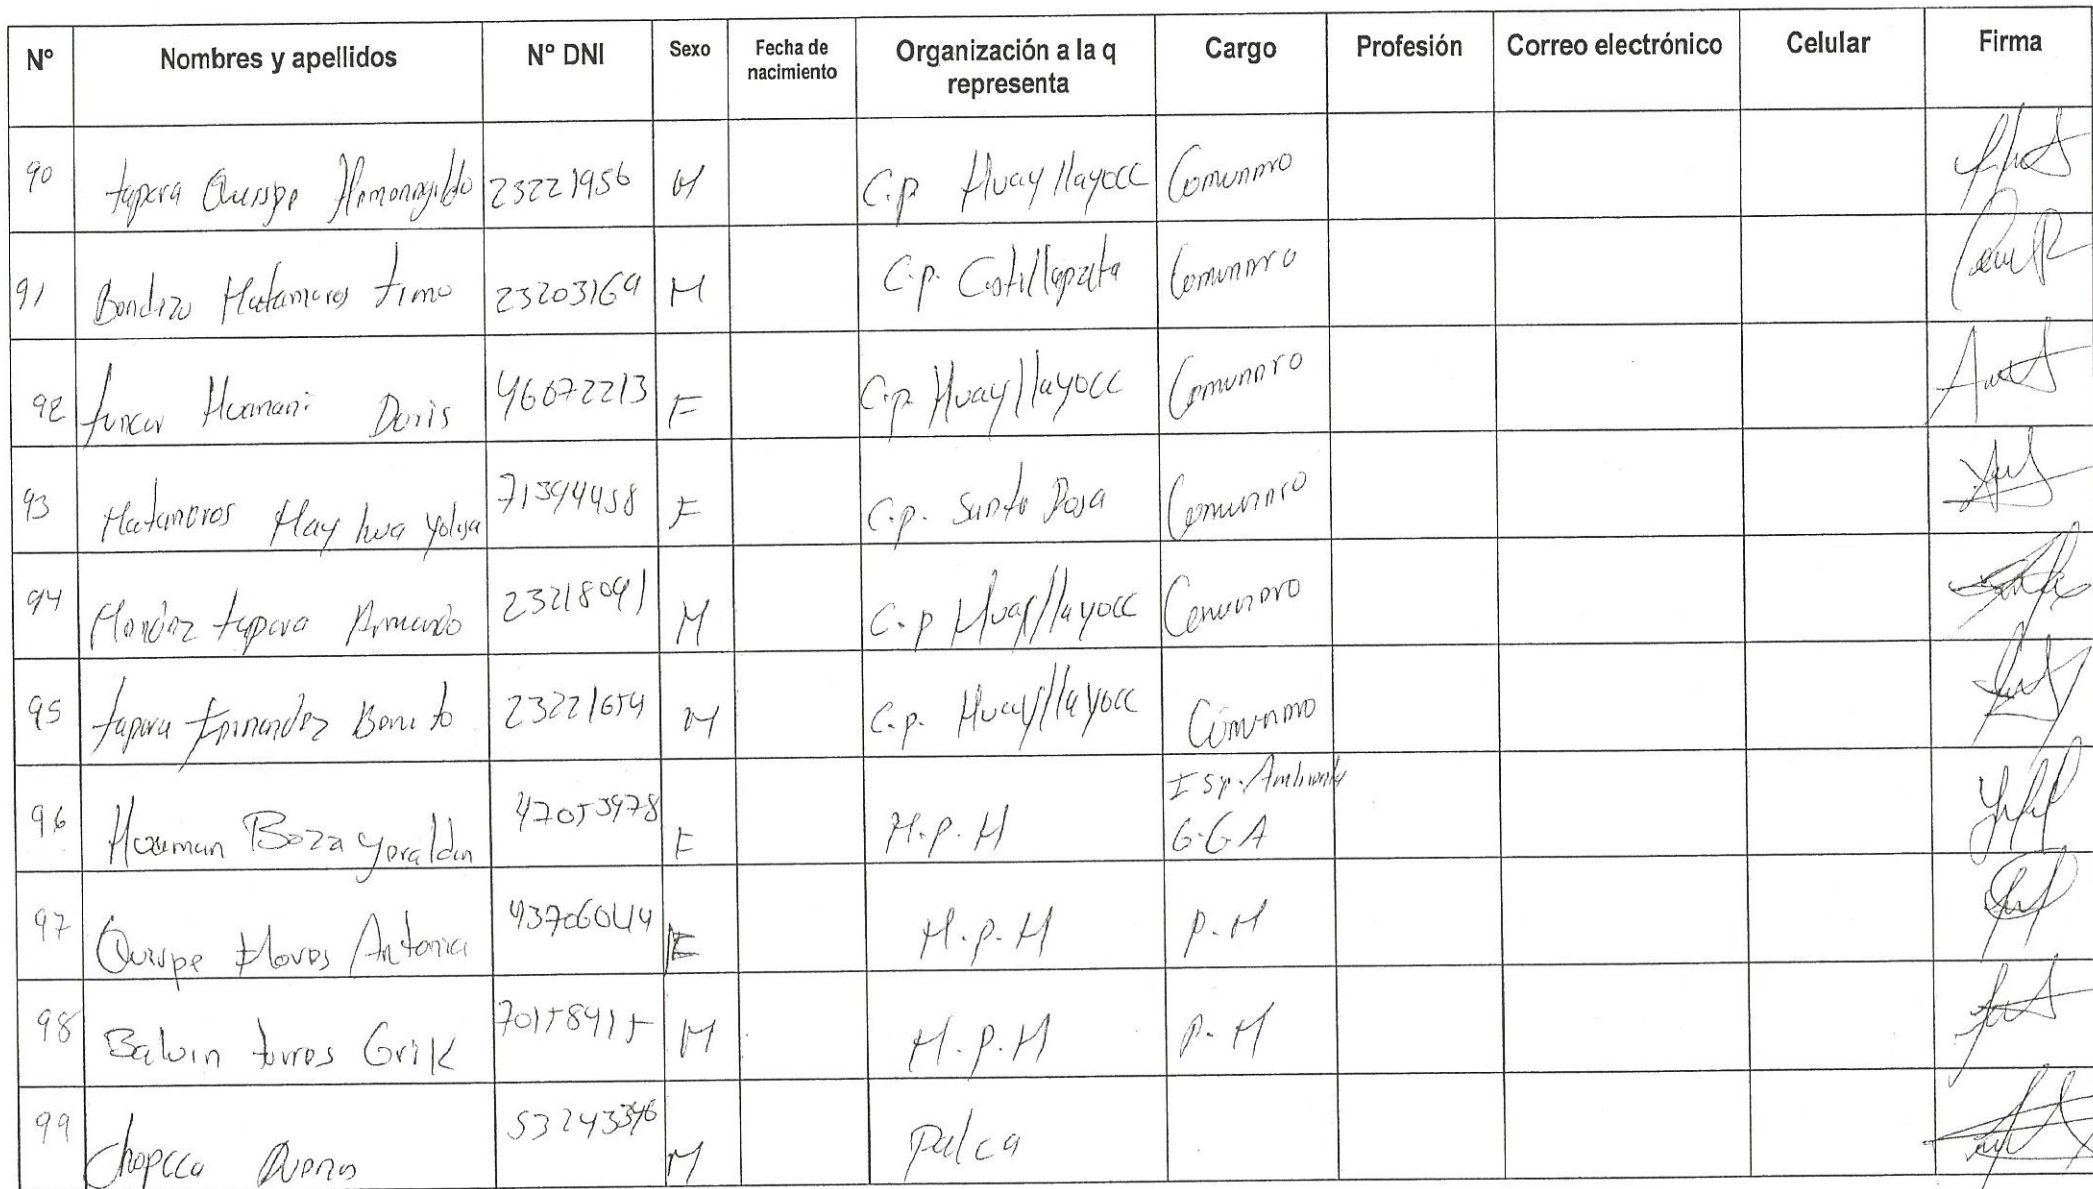 Nº Nombres y apellidos Nº DNI Sexo Fecha de nacimiento Organización a la q representa Cargo Profesión Correo electrónico Celular Firma
90 tapara Quispe Hermenegildo 23221956 M C.p Huayllayocc Comunero
91 Matamoros timo 23203169 M C.p. Castillapata Comunero
92 Huamani Doris 46072213 F C.p. Huayllayocc Comunero
93 Matamoros Hayhua 71394458 F C.p. Santa Rosa Comunero
94 Mendez tapara Armando 23218091 M C.p Huayllayocc Comunero
95 tapara Fernandez Benito 23221654 M C.p. Huayllayocc Comunero
96 Huaman Boza Yeraldin 47053978 F M.P.H Esp. Ambiental G.G.A
97 Quispe Flores Antonia 43706044 F M.P.H P.M
98 Balvin torres Erik 70158415 M M.P.H P.M
99 Chopcca 53243346 M Palca